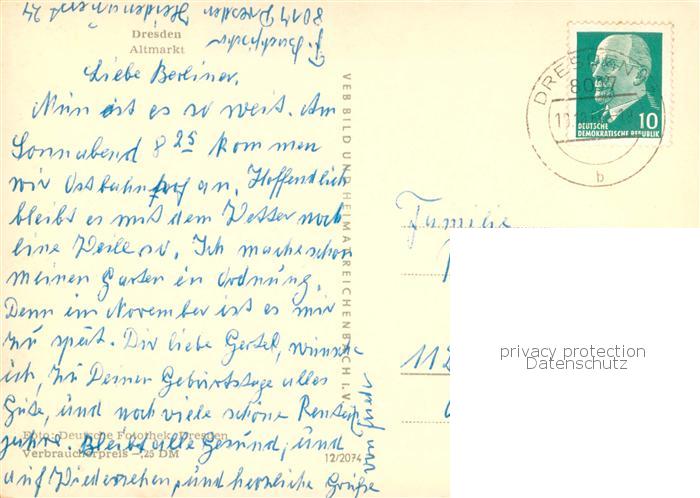 8019 Dresden
Dresden
Altmarkt
Liebe Berliner.
Nun ist es so weit. Am
Sonnabend 8 25 kommen
wir Ostbahnhof an. Hoffendlich
bleibt es mit dem Wetter noch
eine Weile so. Ich mache schon
meinen Garten in Ordnung.
Denn im November ist es mir
zu spät. Dir liebe Gertel, wünsche
ich, zu Deinem Geburtstage alles
Gute, und noch viele schöne Renten
jahre. Bleibt alle Gesund, und
auf Wiedersehen, und herzliche Grüße
von
Foto: Deutsche Fotothek Dresden
Verbraucherpreis -,25 DM
12/2074
VEB BILD UND HEIMAT REICHENBACH I. V.
DRESDEN
b
DEUTSCHE
DEMOKRATISCHE REPUBLIK
10
Familie
112
privacy protection
Datenschutz